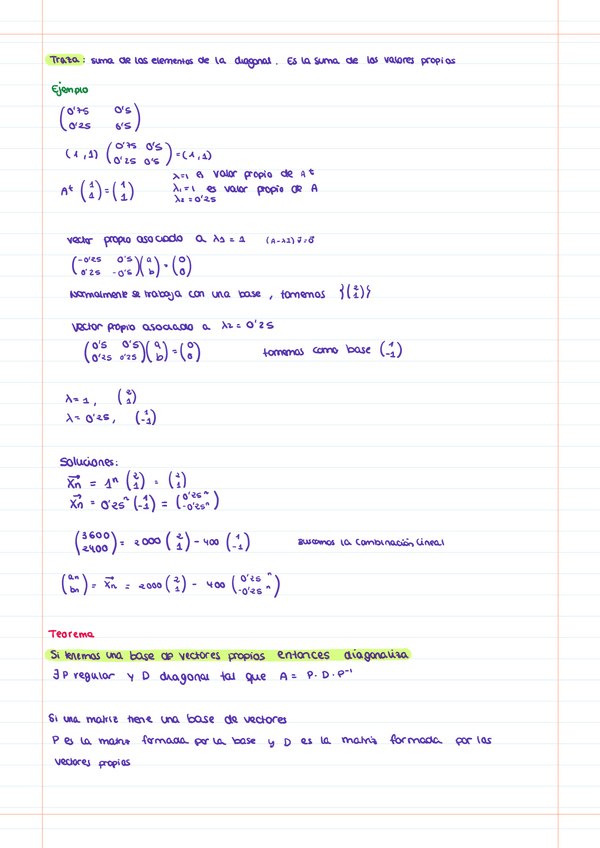 Traza: suma de los elementos de la diagonal. Es la suma de los valores propios
Ejemplo
(0'75 0'5
0'25 0'5)
(1,1) (0'75 0'5
0'25 0'5) = (1,1)
λ=1 es valor propio de Aᵗ
Aᵗ (1
1) = (1
1)
λ₁=1 es valor propio de A
λ₂=0'25
vector propio asociado a λ1 = 1 (A-λI) v⃗ = 0⃗
(-0'25 0'5
0'25 -0'5) (a
b) = (0
0)
Normalmente se trabaja con una base, tomemos {(2
1)}
Vector propio asociado a λ2 = 0'25
(0'5 0'5
0'25 0'25) (a
b) = (0
0) tomemos como base (1
-1)
λ=1, (2
1)
λ=0'25, (1
-1)
Soluciones:
X⃗n = 1ⁿ (2
1) = (2
1)
X⃗n = 0'25ⁿ (1
-1) = (0'25ⁿ
-0'25ⁿ)
(3600
2400) = 2000 (2
1) - 400 (1
-1) Buscamos la combinación lineal
(an
bn) = X⃗n = 2000 (2
1) - 400 (0'25ⁿ
-0'25ⁿ)
Teorema
Si tenemos una base de vectores propios entonces diagonaliza
∃ P regular y D diagonal tal que A = P·D·P⁻¹
Si una matriz tiene una base de vectores
P es la matriz formada por la base y D es la matriz formada por los
vectores propios